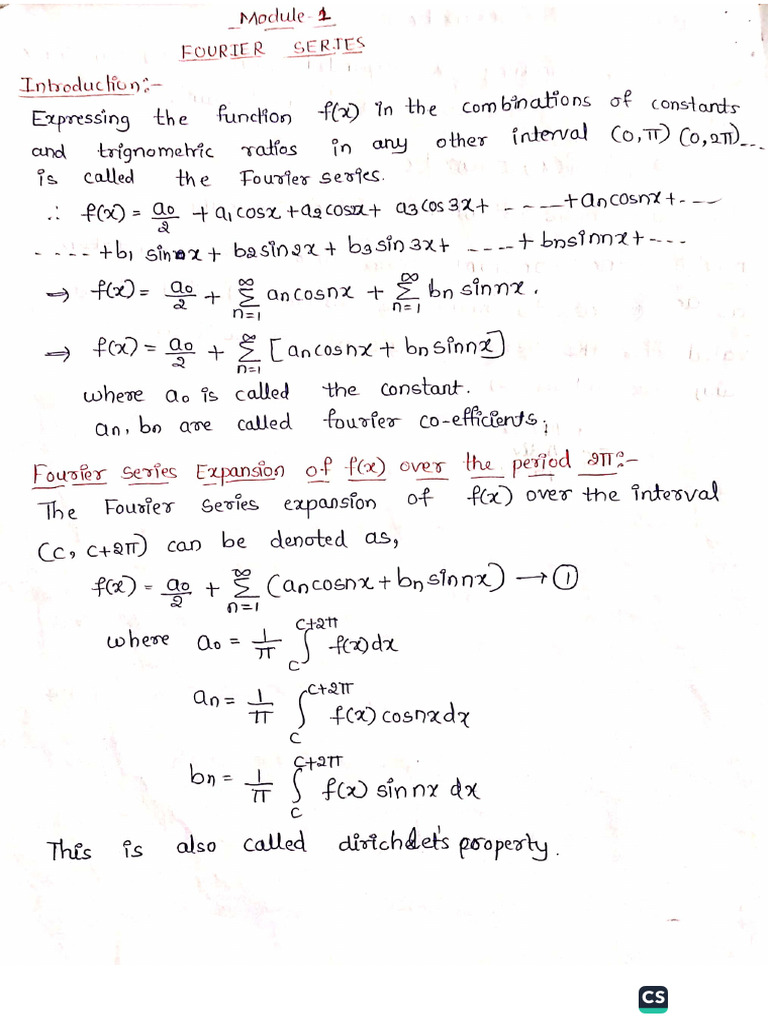 Module-1
FOURIER SERIES
Introduction:-
Expressing the function f(x) in the combinations of constants
and trignometric ratios in any other interval (0,π) (0,2π)...
is called the Fourier series.
∴ f(x) = a0/2 + a1cosx + a2cos2x + a3cos3x + -----+ancosnx+---
-----+b1 sinx + b2sin2x + b3sin3x+ ----+ bnsinnx+---
⇒ f(x) = a0/2 + ∞Σn=1 ancosnx + ∞Σn=1 bnsinnx.
⇒ f(x) = a0/2 + ∞Σn=1 [ancosnx + bnsinnx]
where a0 is called the constant.
an, bn are called fourier co-efficients;
Fourier series Expansion of f(x) over the period 2π:-
The Fourier series expansion of f(x) over the interval
(c, c+2π) can be denoted as,
f(x) = a0/2 + ∞Σn=1 (ancosnx + bnsinnx) → ①
where a0 = 1/π ∫c^c+2π f(x)dx
an = 1/π ∫c^c+2π f(x) cosnxdx
bn = 1/π ∫c^c+2π f(x) sinnx dx
This is also called dirichlet's property.
CS